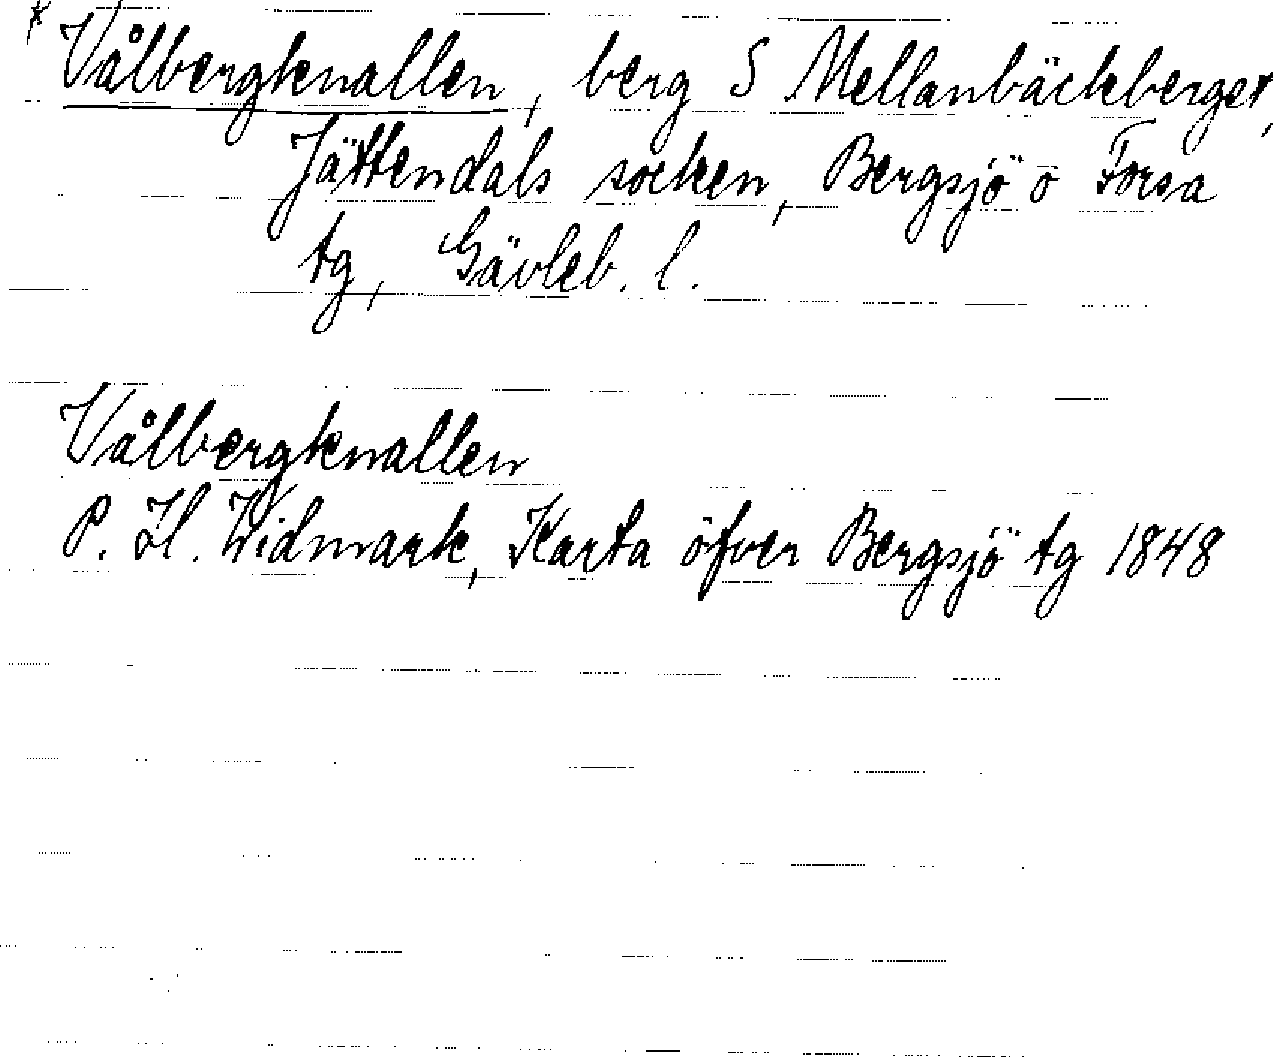 * Vålbergknallen, berg S Mellanbäckberget,
Jättendals socken, Bergsjö o Forsa
tg, Gävleb. l.
Vålbergknallen
P. H. Widmark, Karta öfver Bergsjö tg 1848